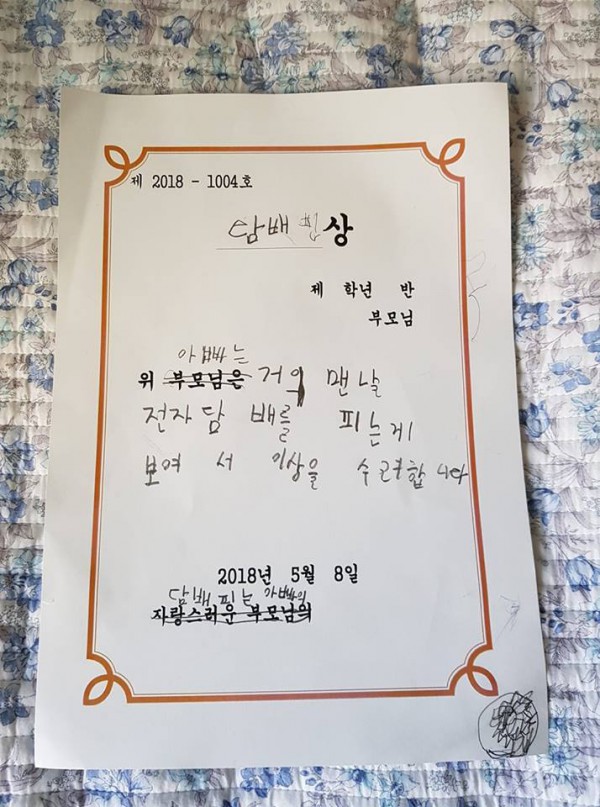 제 2018 - 1004호
담배 상
제 학년 반
부모님
아빠는
위 부모님은 거의 맨날
전자담 배를 피는게
보여 서 이상을 수려합니다
2018년 5월 8일
담배 피는 아빠의
자랑스러운 부모님의